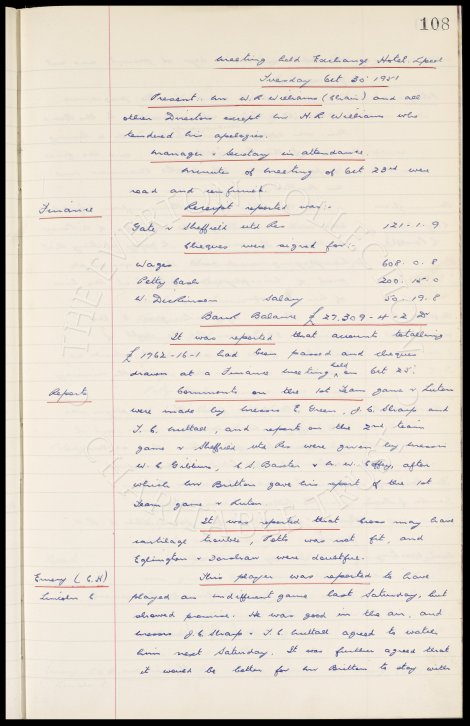 108
Meeting held Exchange Hotel L'pool
Tuesday Oct 30 1951
Present: Mr W. R Williams (Chair) and all
other Directors except Mr H. R Williams who
tendered his apologies.
Manager & Secretary in attendance.
Minutes of meeting of Oct 23rd were
read and confirmed.
Finance
Receipt reported was:-
Gate v Sheffield Utd Res 121-1.9
Cheques were signed for:-
Wages 608.0.8
Petty Cash 200.15.0
W. Dickinson Salary 50.19.8
Bank Balance £27,309-4-2
It was reported that accounts totalling
£1962-16-1 had been passed and cheques
drawn at a Finance meeting held on Oct 25.
Reports
Comments on the 1st Team game v Luton
were made by Messrs E. Green, J. C. Sharp and
T. C. Nuttall, and reports on the 2nd team
game v Sheffield Utd Res were given by Messrs
W. C. Gibbins, C. S. Baxter & Dr. W. Coffey, after
which Mr Britton gave his report of the 1st
Team game v Luton.
It was reported that may have
cartilage trouble, Potts was not fit, and
Eglington & Farshaw were doubtful.
Emery (G. H)
Lincoln C
This player was reported to have
played an indifferent game last Saturday, but
showed promise. He was good in the air, and
Messrs J. C. Sharp & T. C. Nuttall agreed to watch
him next Saturday. It was further agreed that
it would be better for Mr Britton to stay with
THE EVERTON COLLECTION
CHARITABLE TRUST